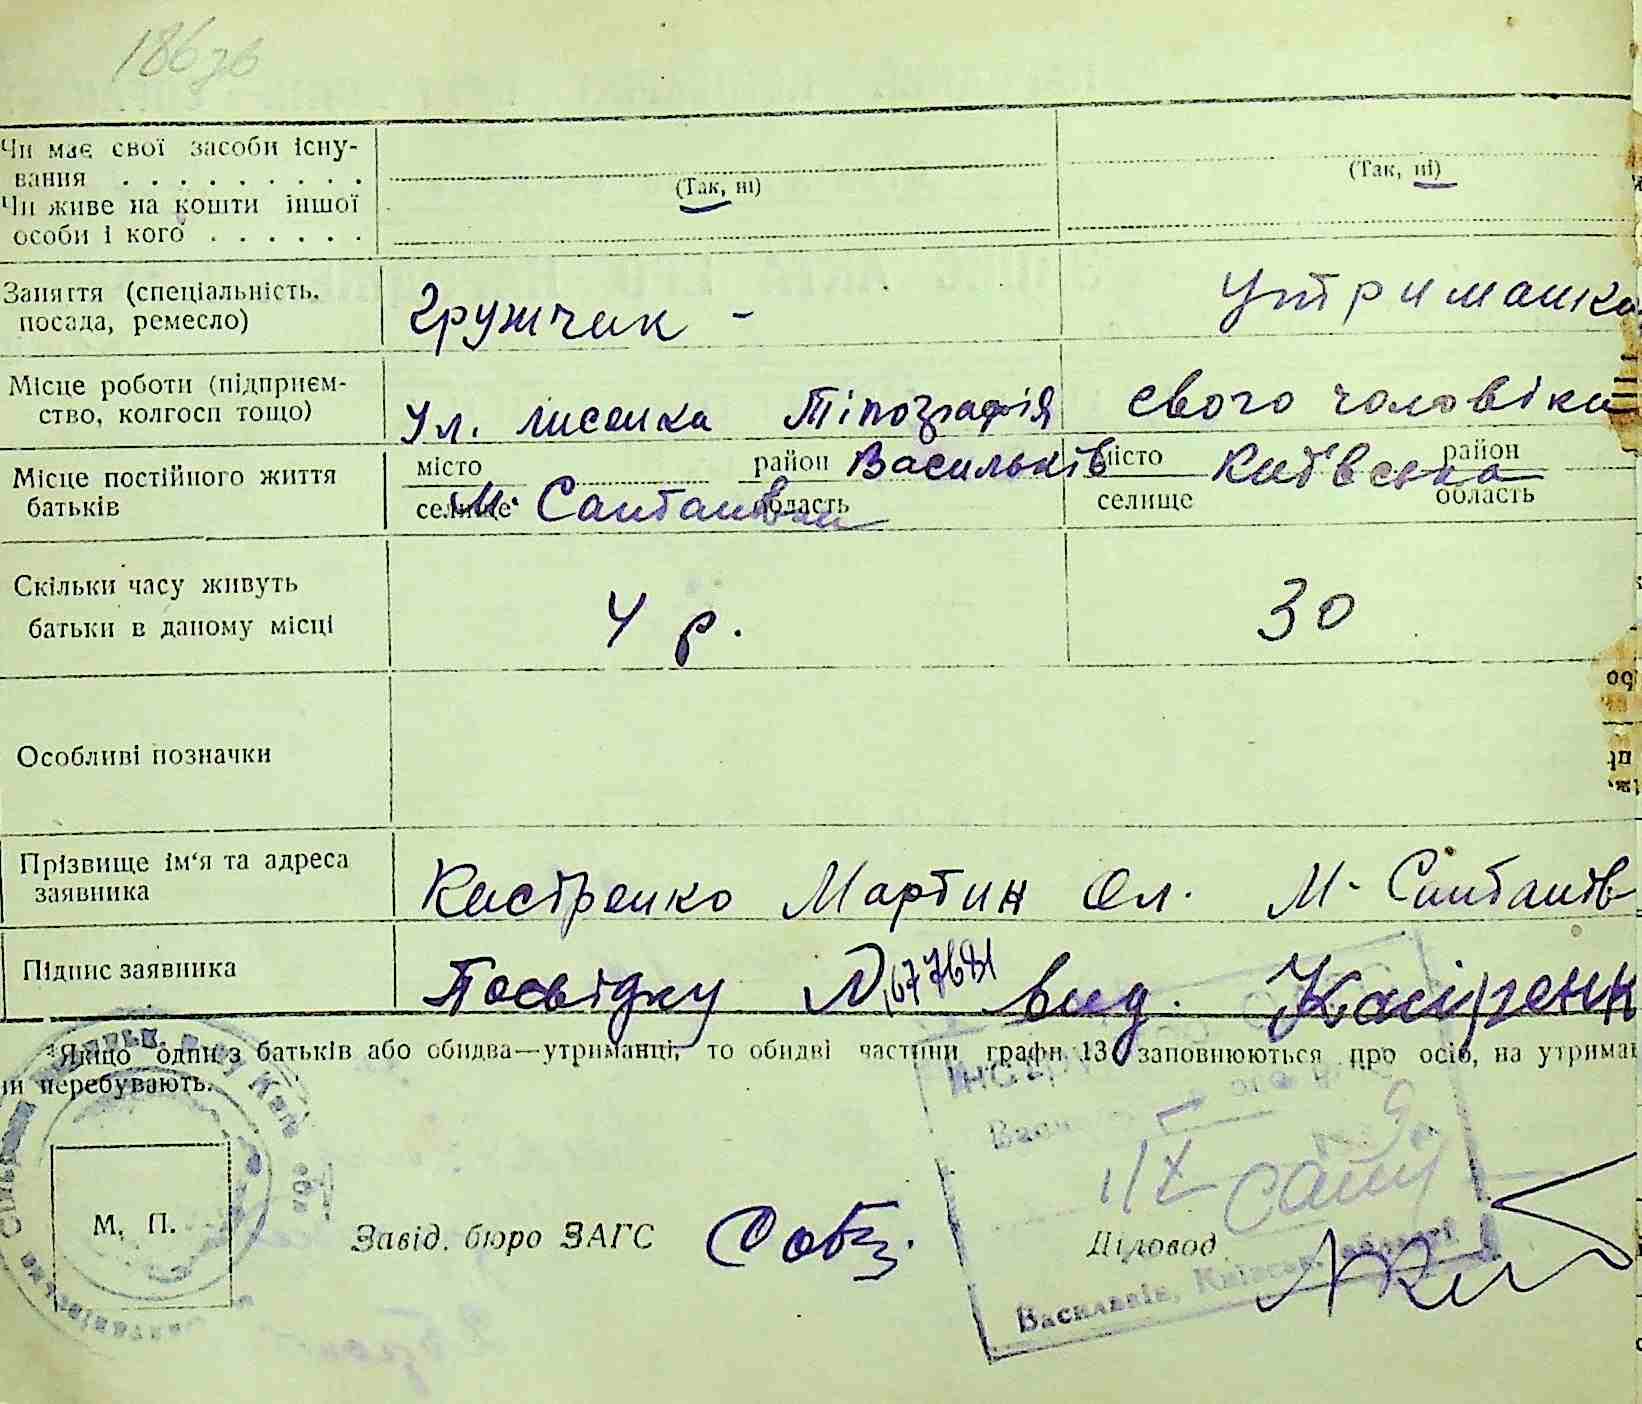 186 зв
Чи має свої засоби існу-
вання . . . . . . . . .
(Так, ні) (Так, ні)
Чи живе на кошти іншої
особи і кого . . . . . .
Заняття (спеціальність,
посада, ремесло) Гружчик - Утриманка
Місце роботи (підприєм-
ство, колгосп тощо) Ул. Лисенка Тіпографія свого чоловіка
Місце постійного життя
батьків
місто район Васильків місто Київська район
селище м. Салтанівка область селище область
Скільки часу живуть
батьки в даному місці 4 р. 30
Особливі позначки
Прізвище ім'я та адреса
заявника Кистренко Мартин Ол. М. Салтанів
Підпис заявника Посвідку № 677681 вид.
*Якщо один з батьків або обидва—утриманці, то обидві частини графи 13 заповнюються про осіб, на утриман
ни перебувають.
М. П.
Завід. бюро ЗАГС Діловод
Васильків, Київськ. області